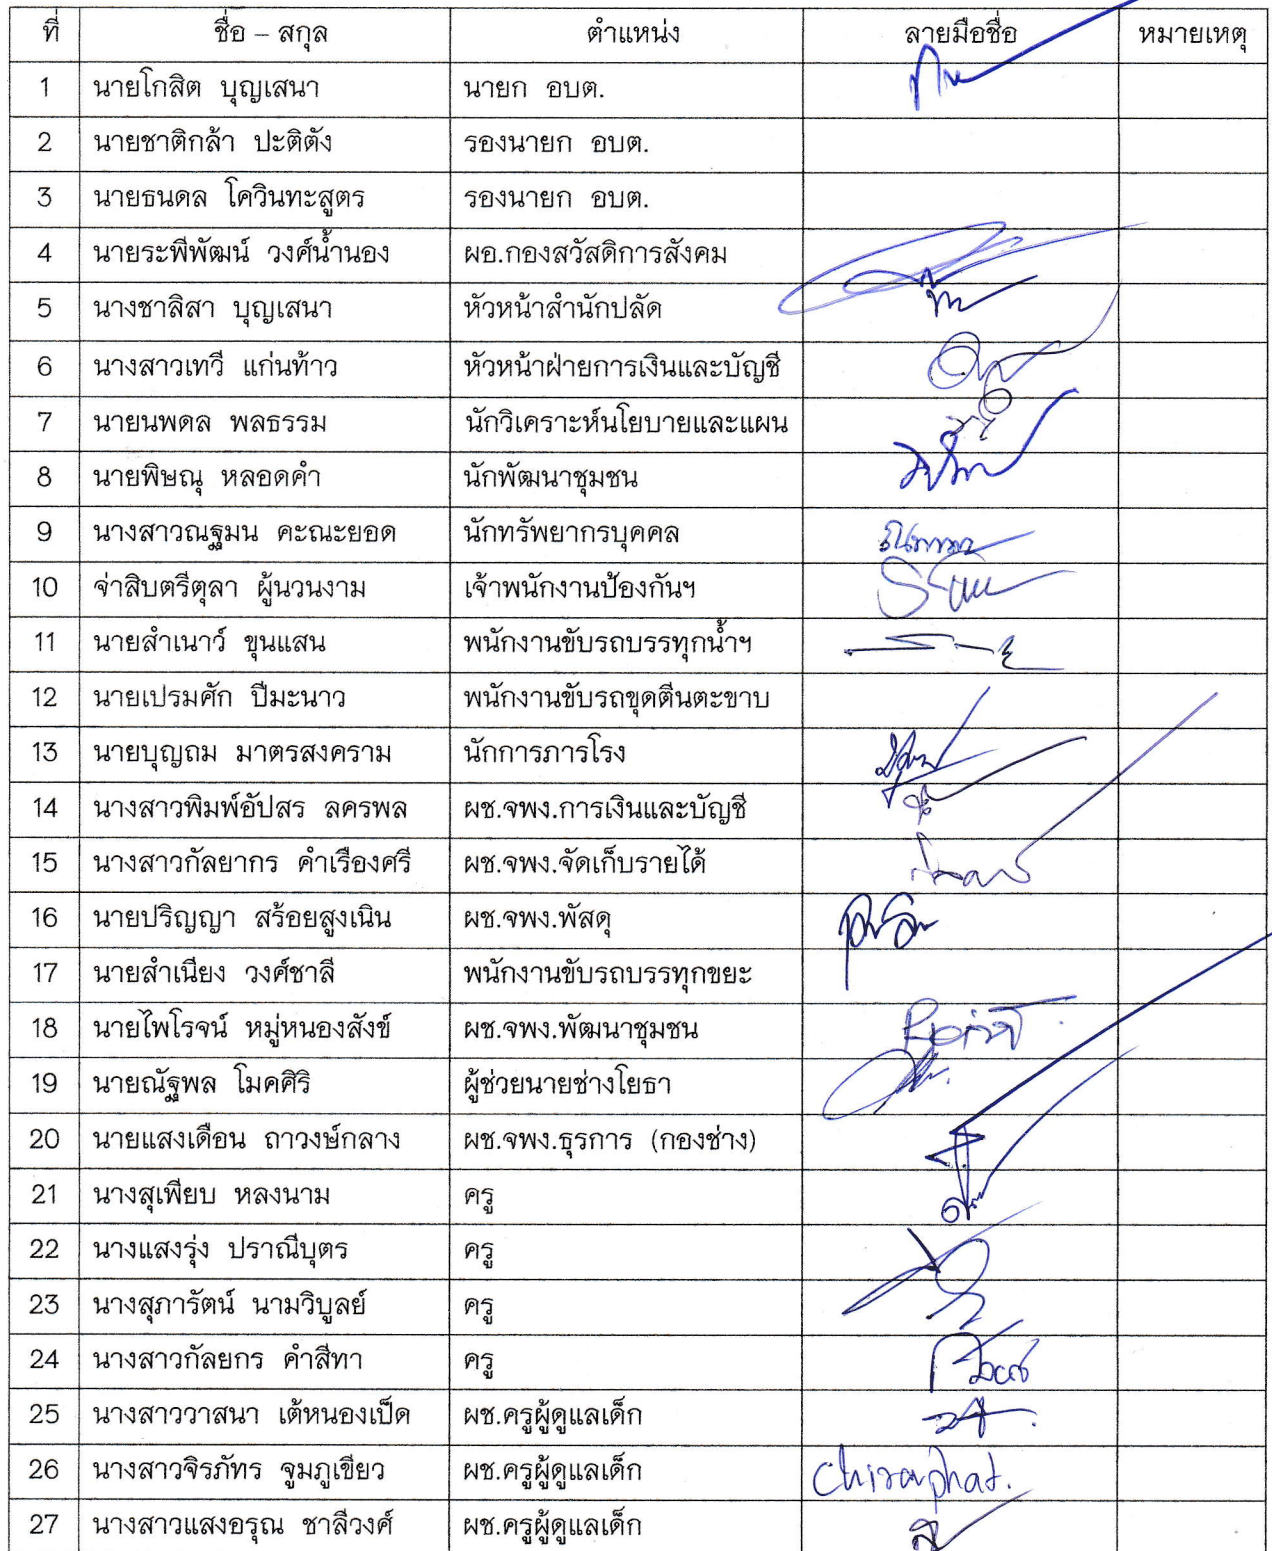 ที่ ชื่อ – สกุล ตำแหน่ง ลายมือชื่อ หมายเหตุ
1 นายโกสิต บุญเสนา นายก อบต.
2 นายชาติกล้า ปะติตัง รองนายก อบต.
3 นายธนดล โควินทะสูตร รองนายก อบต.
4 นายระพีพัฒน์ วงศ์น้ำนอง ผอ.กองสวัสดิการสังคม
5 นางชาลิสา บุญเสนา หัวหน้าสำนักปลัด
6 นางสาวเทวี แก่นท้าว หัวหน้าฝ่ายการเงินและบัญชี
7 นายนพดล พลธรรม นักวิเคราะห์นโยบายและแผน
8 นายพิษณุ หลอดคำ นักพัฒนาชุมชน
9 นางสาวณฐมน คะณะยอด นักทรัพยากรบุคคล
10 จ่าสิบตรีตุลา ผู้นวนงาม เจ้าพนักงานป้องกันฯ
11 นายสำเนาว์ ขุนแสน พนักงานขับรถบรรทุกน้ำฯ
12 นายเปรมศัก ปีมะนาว พนักงานขับรถขุดตีนตะขาบ
13 นายบุญถม มาตรสงคราม นักการภารโรง
14 นางสาวพิมพ์อัปสร ลครพล ผช.จพง.การเงินและบัญชี
15 นางสาวกัลยากร คำเรืองศรี ผช.จพง.จัดเก็บรายได้
16 นายปริญญา สร้อยสูงเนิน ผช.จพง.พัสดุ
17 นายสำเนียง วงศ์ชาลี พนักงานขับรถบรรทุกขยะ
18 นายไพโรจน์ หมู่หนองสังข์ ผช.จพง.พัฒนาชุมชน
19 นายณัฐพล โมคศิริ ผู้ช่วยนายช่างโยธา
20 นายแสงเดือน ถาวงษ์กลาง ผช.จพง.ธุรการ (กองช่าง)
21 นางสุเพียบ หลงนาม ครู
22 นางแสงรุ่ง ปราณีบุตร ครู
23 นางสุภารัตน์ นามวิบูลย์ ครู
24 นางสาวกัลยกร คำสีทา ครู
25 นางสาววาสนา เต้หนองเป็ด ผช.ครูผู้ดูแลเด็ก
26 นางสาวจิรภัทร จูมภูเขียว ผช.ครูผู้ดูแลเด็ก Chiraphat.
27 นางสาวแสงอรุณ ชาลีวงศ์ ผช.ครูผู้ดูแลเด็ก